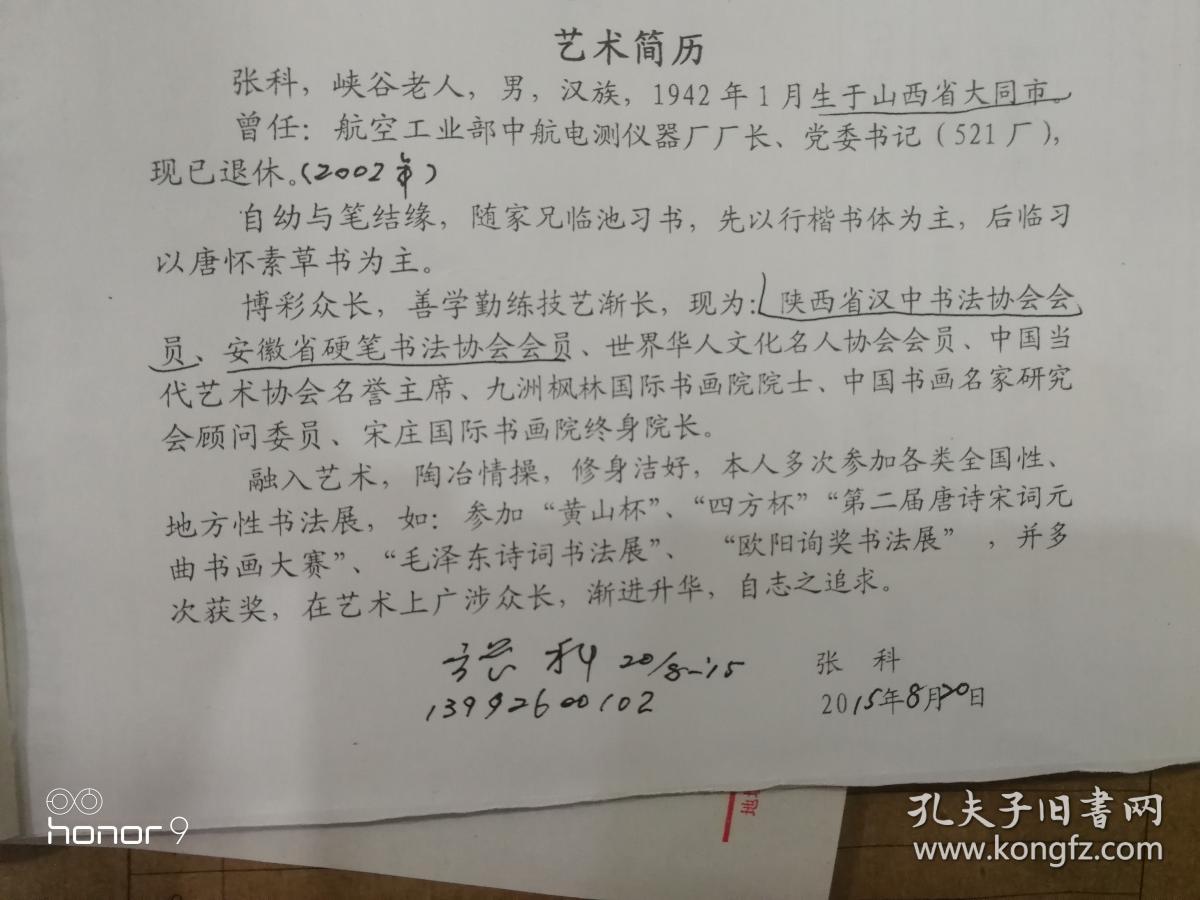 艺术简历
张科，峡谷老人，男，汉族，1942年1月生于山西省大同市。
曾任：航空工业部中航电测仪器厂厂长、党委书记（521厂），
现已退休。（2002年）
自幼与笔结缘，随家兄临池习书，先以行楷书体为主，后临习
以唐怀素草书为主。
博彩众长，善学勤练技艺渐长，现为：陕西省汉中书法协会会
员、安徽省硬笔书法协会会员、世界华人文化名人协会会员、中国当
代艺术协会名誉主席、九洲枫林国际书画院院士、中国书画名家研究
会顾问委员、宋庄国际书画院终身院长。
融入艺术，陶冶情操，修身洁好，本人多次参加各类全国性、
地方性书法展，如：参加“黄山杯”、“四方杯”“第二届唐诗宋词元
曲书画大赛”、“毛泽东诗词书法展”、“欧阳询奖书法展”，并多
次获奖，在艺术上广涉众长，渐进升华，自志之追求。
张科 20/8-15
张 科
13992600102
2015年8月20日
honor 9
孔夫子旧書网
www.kongfz.com